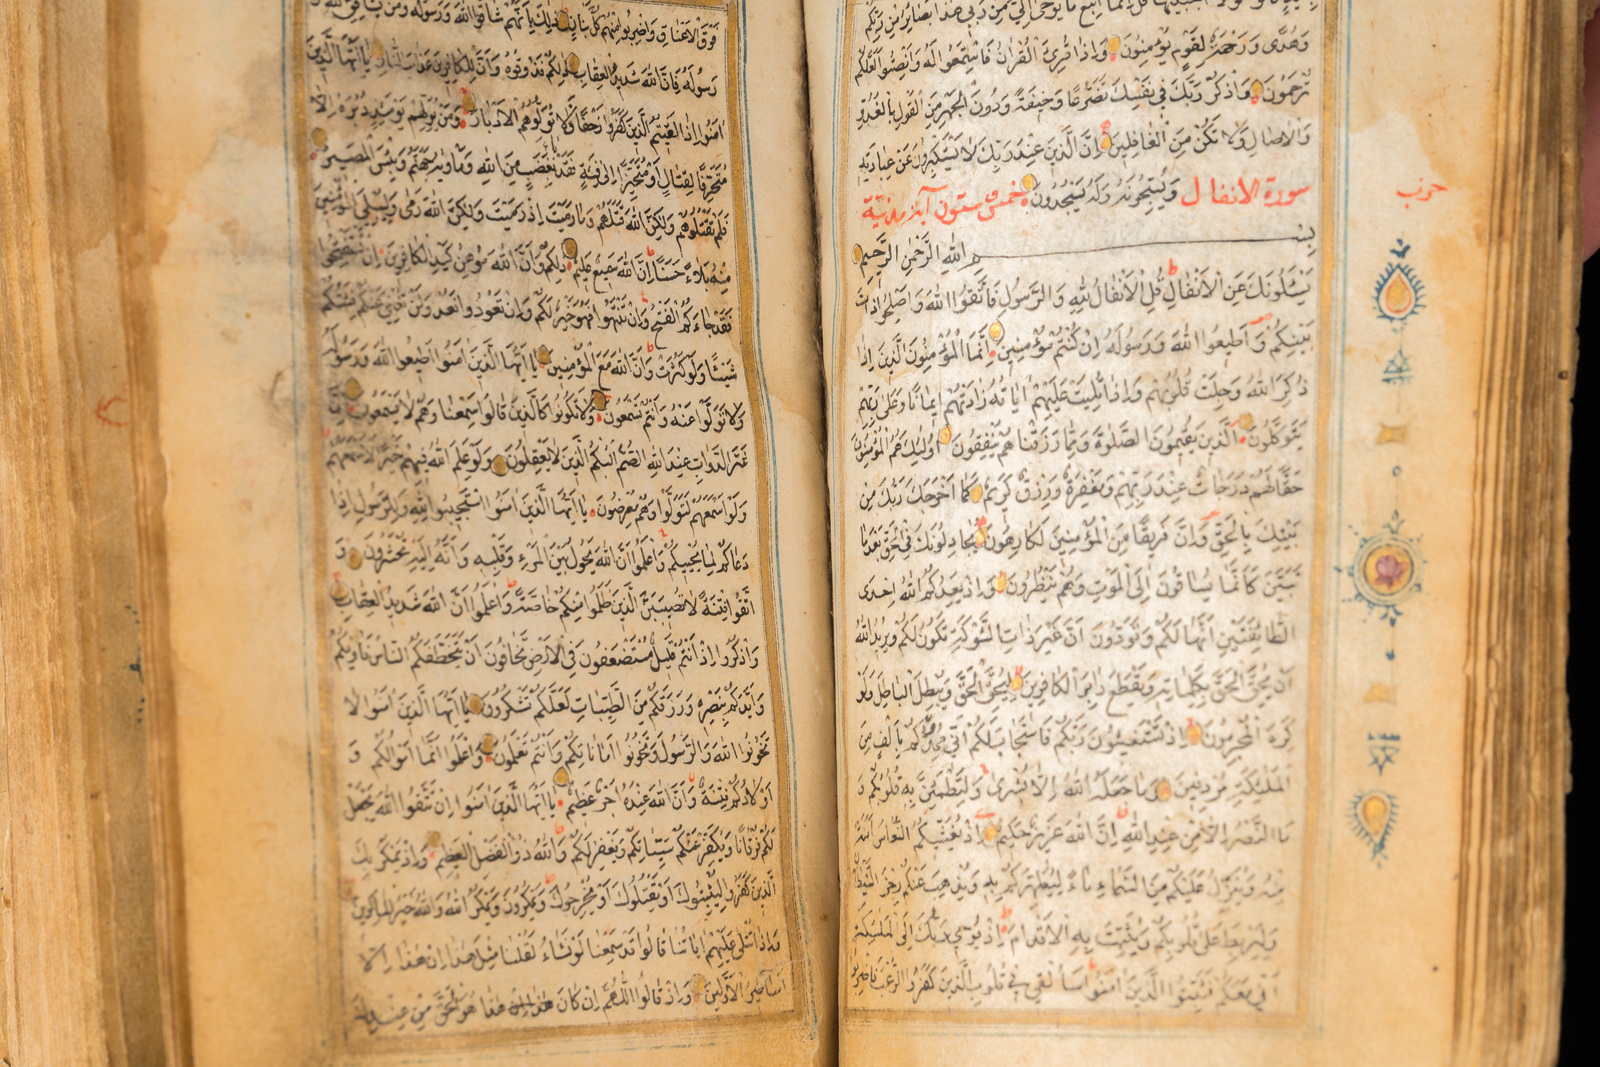 وَهُدًى وَرَحْمَةٌ لِقَوْمٍ يُؤْمِنُونَ وَاِذَا قُرِئَ الْقُرْآنُ فَاسْتَمِعُوا لَهُ وَاَنْصِتُوا لَعَلَّكُمْ
تُرْحَمُونَ وَاذْكُرْ رَبَّكَ فِي نَفْسِكَ تَضَرُّعًا وَخِيفَةً وَدُونَ الْجَهْرِ مِنَ الْقَوْلِ بِالْغُدُوِّ
وَالْاصَالِ وَلَا تَكُنْ مِنَ الْغَافِلِينَ اِنَّ الَّذِينَ عِنْدَ رَبِّكَ لَا يَسْتَكْبِرُونَ عَنْ عِبَادَتِهِ
سورة الانفال وَيُسَبِّحُونَهُ وَلَهُ يَسْجُدُونَ خمس ستون آية مدنية
حزب
بِسْمِ اللهِ الرَّحْمٰنِ الرَّحِيمِ
يَسْئَلُونَكَ عَنِ الْاَنْفَالِ قُلِ الْاَنْفَالُ لِلّٰهِ وَالرَّسُولِ فَاتَّقُوا اللهَ وَاَصْلِحُوا ذَاتَ
بَيْنِكُمْ وَاَطِيعُوا اللهَ وَرَسُولَهُ اِنْ كُنْتُمْ مُؤْمِنِينَ اِنَّمَا الْمُؤْمِنُونَ الَّذِينَ اِذَا
ذُكِرَ اللهُ وَجِلَتْ قُلُوبُهُمْ وَاِذَا تُلِيَتْ عَلَيْهِمْ اٰيَاتُهُ زَادَتْهُمْ اِيمَانًا وَعَلٰى رَبِّهِمْ
يَتَوَكَّلُونَ الَّذِينَ يُقِيمُونَ الصَّلٰوةَ وَمِمَّا رَزَقْنَاهُمْ يُنْفِقُونَ اُولٰئِكَ هُمُ الْمُؤْمِنُونَ
حَقًّا لَهُمْ دَرَجَاتٌ عِنْدَ رَبِّهِمْ وَمَغْفِرَةٌ وَرِزْقٌ كَرِيمٌ كَمَا اَخْرَجَكَ رَبُّكَ مِنْ
بَيْتِكَ بِالْحَقِّ وَاِنَّ فَرِيقًا مِنَ الْمُؤْمِنِينَ لَكَارِهُونَ يُجَادِلُونَكَ فِي الْحَقِّ بَعْدَ مَا
تَبَيَّنَ كَاَنَّمَا يُسَاقُونَ اِلَى الْمَوْتِ وَهُمْ يَنْظُرُونَ وَاِذْ يَعِدُكُمُ اللهُ اِحْدَى
الطَّائِفَتَيْنِ اَنَّهَا لَكُمْ وَتَوَدُّونَ اَنَّ غَيْرَ ذَاتِ الشَّوْكَةِ تَكُونُ لَكُمْ وَيُرِيدُ اللهُ
اَنْ يُحِقَّ الْحَقَّ بِكَلِمَاتِهِ وَيَقْطَعَ دَابِرَ الْكَافِرِينَ لِيُحِقَّ الْحَقَّ وَيُبْطِلَ الْبَاطِلَ وَلَوْ
كَرِهَ الْمُجْرِمُونَ اِذْ تَسْتَغِيثُونَ رَبَّكُمْ فَاسْتَجَابَ لَكُمْ اَنِّي مُمِدُّكُمْ بِاَلْفٍ مِنَ
الْمَلٰئِكَةِ مُرْدِفِينَ وَمَا جَعَلَهُ اللهُ اِلَّا بُشْرٰى وَلِتَطْمَئِنَّ بِهِ قُلُوبُكُمْ وَ
مَا النَّصْرُ اِلَّا مِنْ عِنْدِ اللهِ اِنَّ اللهَ عَزِيزٌ حَكِيمٌ اِذْ يُغَشِّيكُمُ النُّعَاسَ اَمَنَةً
مِنْهُ وَيُنَزِّلُ عَلَيْكُمْ مِنَ السَّمَاءِ مَاءً لِيُطَهِّرَكُمْ بِهِ وَيُذْهِبَ عَنْكُمْ رِجْزَ الشَّيْطَانِ
وَلِيَرْبِطَ عَلٰى قُلُوبِكُمْ وَيُثَبِّتَ بِهِ الْاَقْدَامَ اِذْ يُوحِي رَبُّكَ اِلَى الْمَلٰئِكَةِ
اَنِّي مَعَكُمْ فَثَبِّتُوا الَّذِينَ اٰمَنُوا سَاُلْقِي فِي قُلُوبِ الَّذِينَ كَفَرُوا الرُّعْبَ فَاضْرِبُوا
فَوْقَ الْاَعْنَاقِ وَاضْرِبُوا مِنْهُمْ كُلَّ بَنَانٍ ذٰلِكَ بِاَنَّهُمْ شَاقُّوا اللهَ وَرَسُولَهُ وَمَنْ يُشَاقِقِ اللهَ وَ
رَسُولَهُ فَاِنَّ اللهَ شَدِيدُ الْعِقَابِ ذٰلِكُمْ فَذُوقُوهُ وَاَنَّ لِلْكَافِرِينَ عَذَابَ النَّارِ يَا اَيُّهَا الَّذِينَ
اٰمَنُوا اِذَا لَقِيتُمُ الَّذِينَ كَفَرُوا زَحْفًا فَلَا تُوَلُّوهُمُ الْاَدْبَارَ وَمَنْ يُوَلِّهِمْ يَوْمَئِذٍ دُبُرَهُ اِلَّا
مُتَحَرِّفًا لِقِتَالٍ اَوْ مُتَحَيِّزًا اِلٰى فِئَةٍ فَقَدْ بَاءَ بِغَضَبٍ مِنَ اللهِ وَمَاْوٰيهُ جَهَنَّمُ وَبِئْسَ الْمَصِيرُ
فَلَمْ تَقْتُلُوهُمْ وَلٰكِنَّ اللهَ قَتَلَهُمْ وَمَا رَمَيْتَ اِذْ رَمَيْتَ وَلٰكِنَّ اللهَ رَمٰى وَلِيُبْلِيَ الْمُؤْمِنِينَ
مِنْهُ بَلَاءً حَسَنًا اِنَّ اللهَ سَمِيعٌ عَلِيمٌ ذٰلِكُمْ وَاَنَّ اللهَ مُوهِنُ كَيْدِ الْكَافِرِينَ اِنْ تَسْتَفْتِحُوا
فَقَدْ جَاءَكُمُ الْفَتْحُ وَاِنْ تَنْتَهُوا فَهُوَ خَيْرٌ لَكُمْ وَاِنْ تَعُودُوا نَعُدْ وَلَنْ تُغْنِيَ عَنْكُمْ فِئَتُكُمْ
شَيْئًا وَلَوْ كَثُرَتْ وَاَنَّ اللهَ مَعَ الْمُؤْمِنِينَ يَا اَيُّهَا الَّذِينَ اٰمَنُوا اَطِيعُوا اللهَ وَرَسُولَهُ
وَلَا تَوَلَّوْا عَنْهُ وَاَنْتُمْ تَسْمَعُونَ وَلَا تَكُونُوا كَالَّذِينَ قَالُوا سَمِعْنَا وَهُمْ لَا يَسْمَعُونَ اِنَّ
شَرَّ الدَّوَابِّ عِنْدَ اللهِ الصُّمُّ الْبُكْمُ الَّذِينَ لَا يَعْقِلُونَ وَلَوْ عَلِمَ اللهُ فِيهِمْ خَيْرًا لَاَسْمَعَهُمْ
وَلَوْ اَسْمَعَهُمْ لَتَوَلَّوْا وَهُمْ مُعْرِضُونَ يَا اَيُّهَا الَّذِينَ اٰمَنُوا اسْتَجِيبُوا لِلّٰهِ وَلِلرَّسُولِ اِذَا
دَعَاكُمْ لِمَا يُحْيِيكُمْ وَاعْلَمُوا اَنَّ اللهَ يَحُولُ بَيْنَ الْمَرْءِ وَقَلْبِهِ وَاَنَّهُ اِلَيْهِ تُحْشَرُونَ وَ
اتَّقُوا فِتْنَةً لَا تُصِيبَنَّ الَّذِينَ ظَلَمُوا مِنْكُمْ خَاصَّةً وَاعْلَمُوا اَنَّ اللهَ شَدِيدُ الْعِقَابِ
وَاذْكُرُوا اِذْ اَنْتُمْ قَلِيلٌ مُسْتَضْعَفُونَ فِي الْاَرْضِ تَخَافُونَ اَنْ يَتَخَطَّفَكُمُ النَّاسُ فَاٰوٰيكُمْ
وَاَيَّدَكُمْ بِنَصْرِهِ وَرَزَقَكُمْ مِنَ الطَّيِّبَاتِ لَعَلَّكُمْ تَشْكُرُونَ يَا اَيُّهَا الَّذِينَ اٰمَنُوا لَا
تَخُونُوا اللهَ وَالرَّسُولَ وَتَخُونُوا اَمَانَاتِكُمْ وَاَنْتُمْ تَعْلَمُونَ وَاعْلَمُوا اَنَّمَا اَمْوَالُكُمْ وَ
اَوْلَادُكُمْ فِتْنَةٌ وَاَنَّ اللهَ عِنْدَهُ اَجْرٌ عَظِيمٌ يَا اَيُّهَا الَّذِينَ اٰمَنُوا اِنْ تَتَّقُوا اللهَ يَجْعَلْ
لَكُمْ فُرْقَانًا وَيُكَفِّرْ عَنْكُمْ سَيِّئَاتِكُمْ وَيَغْفِرْ لَكُمْ وَاللهُ ذُو الْفَضْلِ الْعَظِيمِ وَاِذْ يَمْكُرُ بِكَ
الَّذِينَ كَفَرُوا لِيُثْبِتُوكَ اَوْ يَقْتُلُوكَ اَوْ يُخْرِجُوكَ وَيَمْكُرُونَ وَيَمْكُرُ اللهُ وَاللهُ خَيْرُ الْمَاكِرِينَ
وَاِذَا تُتْلٰى عَلَيْهِمْ اٰيَاتُنَا قَالُوا قَدْ سَمِعْنَا لَوْ نَشَاءُ لَقُلْنَا مِثْلَ هٰذَا اِنْ هٰذَا اِلَّا
اَسَاطِيرُ الْاَوَّلِينَ وَاِذْ قَالُوا اللّٰهُمَّ اِنْ كَانَ هٰذَا هُوَ الْحَقَّ مِنْ عِنْدِكَ